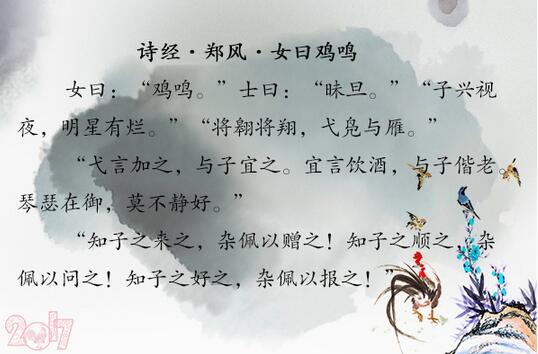 诗经·郑风·女曰鸡鸣
女曰：“鸡鸣。”士曰：“昧旦。”“子兴视
夜，明星有烂。”“将翱将翔，弋凫与雁。”
“弋言加之，与子宜之。宜言饮酒，与子偕老。
琴瑟在御，莫不静好。”
“知子之来之，杂佩以赠之！知子之顺之，杂
佩以问之！知子之好之，杂佩以报之！”
2017